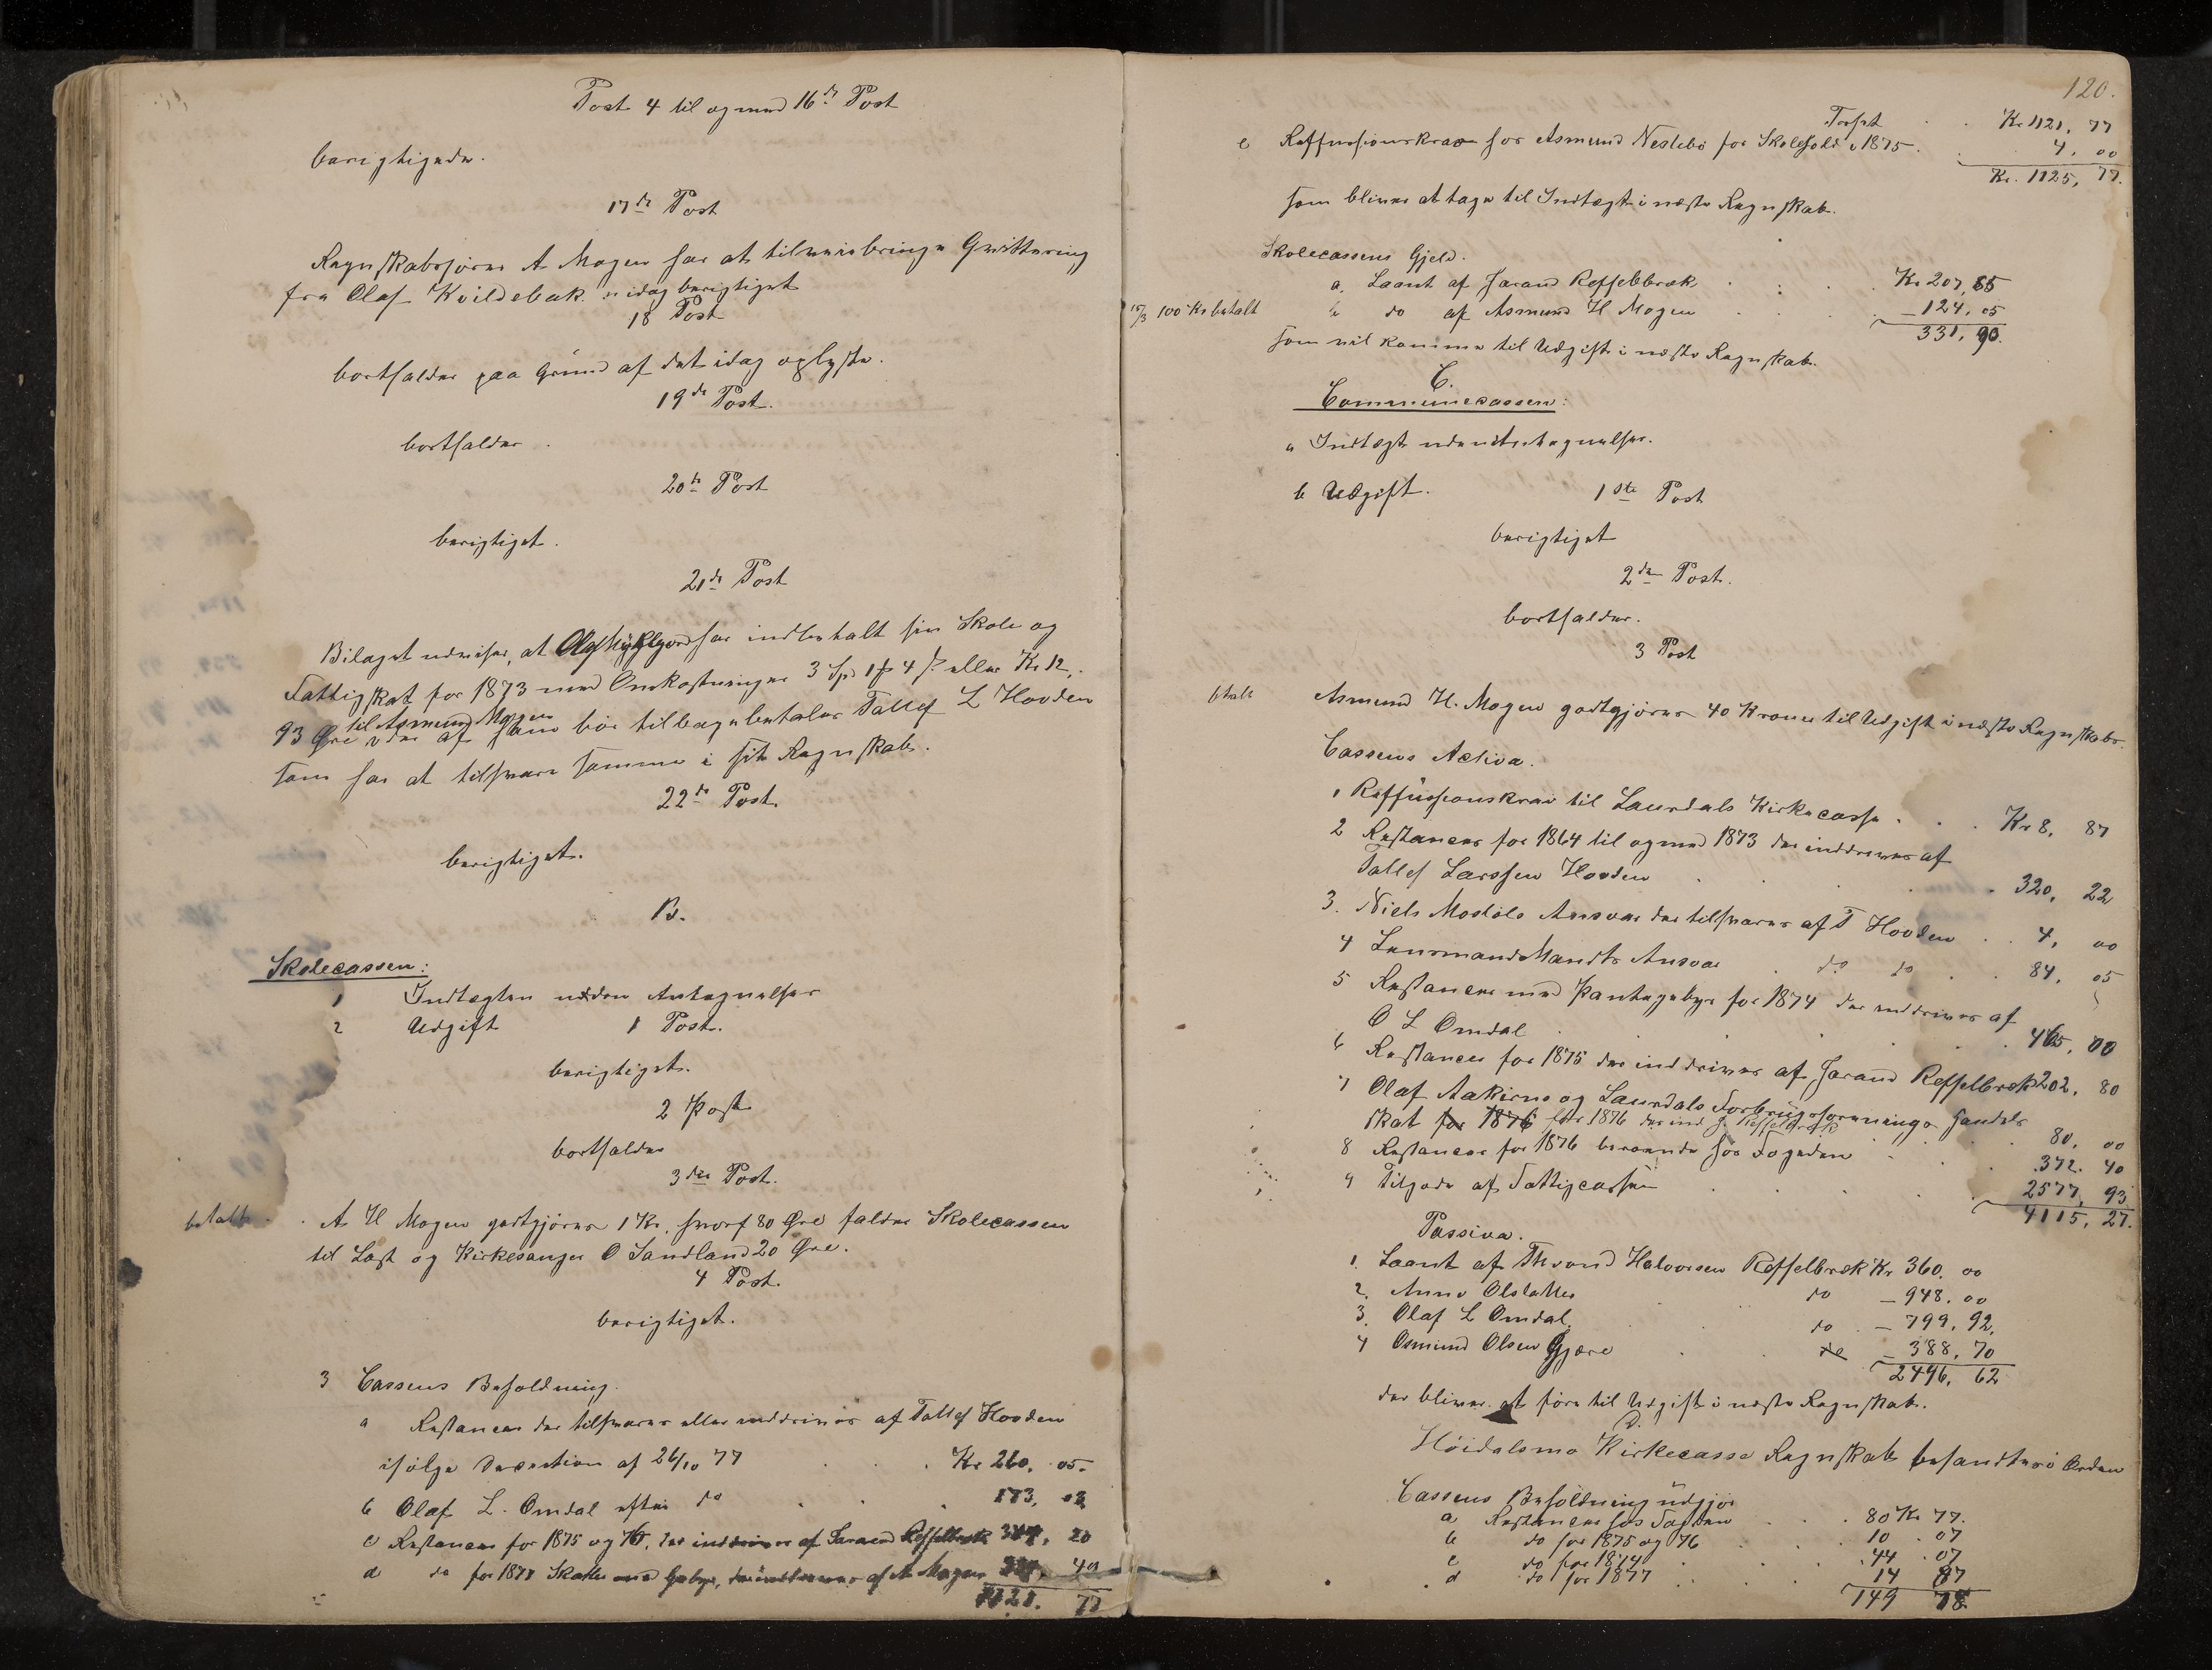 Post 4 til og med 16de Post
berigtigede.
17de Post
Regnskabsfører A Mogen har at tilveiebringe Qvittering
fra Olaf Kvildebæk. idag berigtiget
18 Post
bortfalder paa Grund af det idag oplyste.
19de Post.
bortfalder.
20de Post
berigtiget.
21de Post
Bilaget udviser, at Olaf har indbetalt sin Skole og
Fattigskat for 1873 med Omkostninger 3 Spd 1 4 eller Kr 12,
til Asmund Mogen
93 Øre der af ham bør tilbagebetales Tallef L Hovden
som har at tilsvare samme i sit Regnskab.
22de Post.
berigtiget.
B.
Skolecassen:
1 Indtægten uden Antegnelser
2 Udgift 1 Post.
berigtiget.
2 Post
bortfalder
3die Post.
betalt. A H Mogen godtgjøres 1 Kr. hvoraf 80 Øre falder Skolecassen
til Last og Kirkesanger O Sandland 20 Øre.
4 Post.
berigtiget.
3 Cassens Beholdning.
a Restancer der tilsvares eller inddrives af Tallef Hovden
ifølge Decretion af 26/10 77 Kr 260. 05.
b Olaf L. Omdal efter do 173, 03
c Restancer for 1875 og 76. der inddrives af Jarand Reffelbræk 20
d do for 1877 Skatter med Gebyr, der inddrives af A Mogen 40
1121. 77
120.
Trspt Kr. 1121, 77
e Reffusionskrav hos Asmund Neslebø for Skolehold i 1875. 4. 00
Kr. 1125, 77.
som bliver at tage til Indtægt i næste Regnskab.
Skolecassens Gjeld.
a. Laant af Jarand Reffelbræk Kr 207, 85
15/3 100 Kr betalt b do af Asmund H Mogen 124. 05
331. 90.
som vil komme til Udgift i næste Regnskab.
C.
Communecassen:
a Indtægt uden Antegnelser.
b Udgift. 1ste Post
berigtiget
2den Post.
bortfalder.
3 Post
btalt Asmund H. Mogen godtgjøres 40 Kroner til Udgift i næste Regnskab.
Cassens Activa.
1 Reffusionskrav til Laurdals Kirkecasse Kr 8, 87
2 Restancer for 1864 til og med 1873 der inddrives af
Tallef Larssen Hovden 320, 22
3. Niels Modøls Ansvar der tilsvares af T Hovden 4, 00
4 Lensmand Mandts Ansvar do do 84, 05
5 Restancer med Pantegebyr for 1874 der inddrives af
O L Omdal 465, 00
6 Restancer for 1875 der inddrives af Jarand Reffelbræk 202. 80
7 Olaf Aakirns og Laurdals Forbrugsforenings Handels
skat for 1876 for 1876 der ind J. Reffelbræk 80. 00
8 Restancer for 1876 beroende hos Fogeden 372. 40
9 Tilgode af Fattigcassen 2577, 93
4115, 27.
Passiva.
1. Laant af Thrond Halvorsen Reffelbræk Kr 360. 00
2. Anne Olslatten do 948. 00
3. Olaf L Omdal. do 799. 92.
4 Osmund Olsen Gjære do 388, 70
2496, 62
der bliver at føre til Udgift i næste Regnskab.
D.
Høidalsmo Kirkecasse Regnskab befandtes i Orden
Cassens Beholdning udgjør
a Restancer hos Fogden 80 Kr 77.
b do for 1875 og 76 10. 07
c do for 1874 44. 07
d do for 1877 14 87
149 78